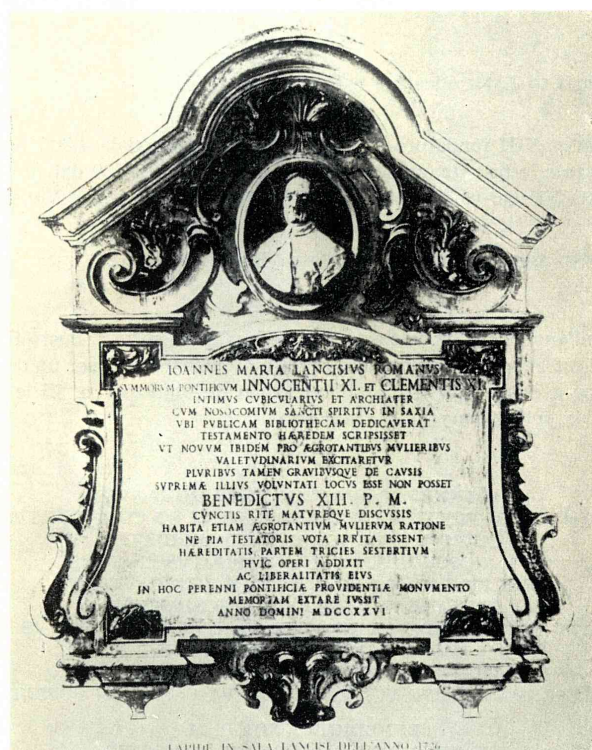 IOANNES MARIA LANCISIVS ROMANVS
SVMMORVM PONTIFICVM INNOCENTII XI. ET CLEMENTIS XI.
INTIMVS CVBICVLARIVS ET ARCHIATER
CVM NOSOCOMIVM SANCTI SPIRITVS IN SAXIA
VBI PVBLICAM BIBLIOTHECAM DEDICAVERAT
TESTAMENTO HÆREDEM SCRIPSISSET
VT NOVVM IBIDEM PRO ÆGROTANTIBVS MVLIERIBVS
VALETVDINARIVM EXCITARETVR
PLVRIBVS TAMEN GRAVIBVSQVE DE CAVSIS
SVPREMÆ ILLIVS VOLVNTATI LOCVS ESSE NON POSSET
BENEDICTVS XIII. P. M.
CVNCTIS RITE MATVREQVE DISCVSSIS
HABITA ETIAM ÆGROTANTIVM MVLIERVM RATIONE
NE PIA TESTATORIS VOTA IRRITA ESSENT
HÆREDITATIS PARTEM TRICIES SESTERTIVM
HVIC OPERI ADDIXIT
AC LIBERALITATIS EIVS
IN HOC PERENNI PONTIFICIÆ PROVIDENTIÆ MONVMENTO
MEMORIAM EXTARE IVSSIT
ANNO DOMINI MDCCXXVI
LAPIDE IN SALA LANCISI DELL'ANNO 1726